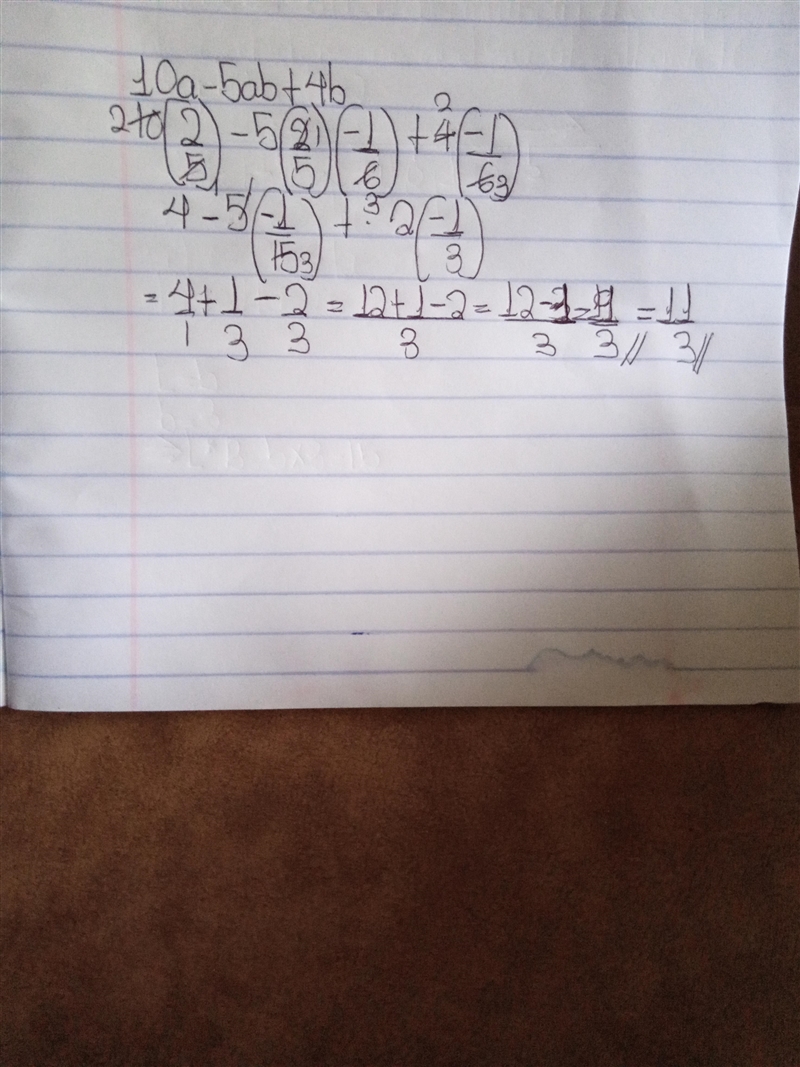 10a-5ab+4b
2 10(2/5) - 5(2/5)(-1/6) + 4 2(-1/6 3)
4 - 5(-1/15 3) + 2(-1/3)
= 4/1 + 1/3 - 2/3 = 12+1-2/3 = 12-1/3 = 11/3 // = 11/3 //